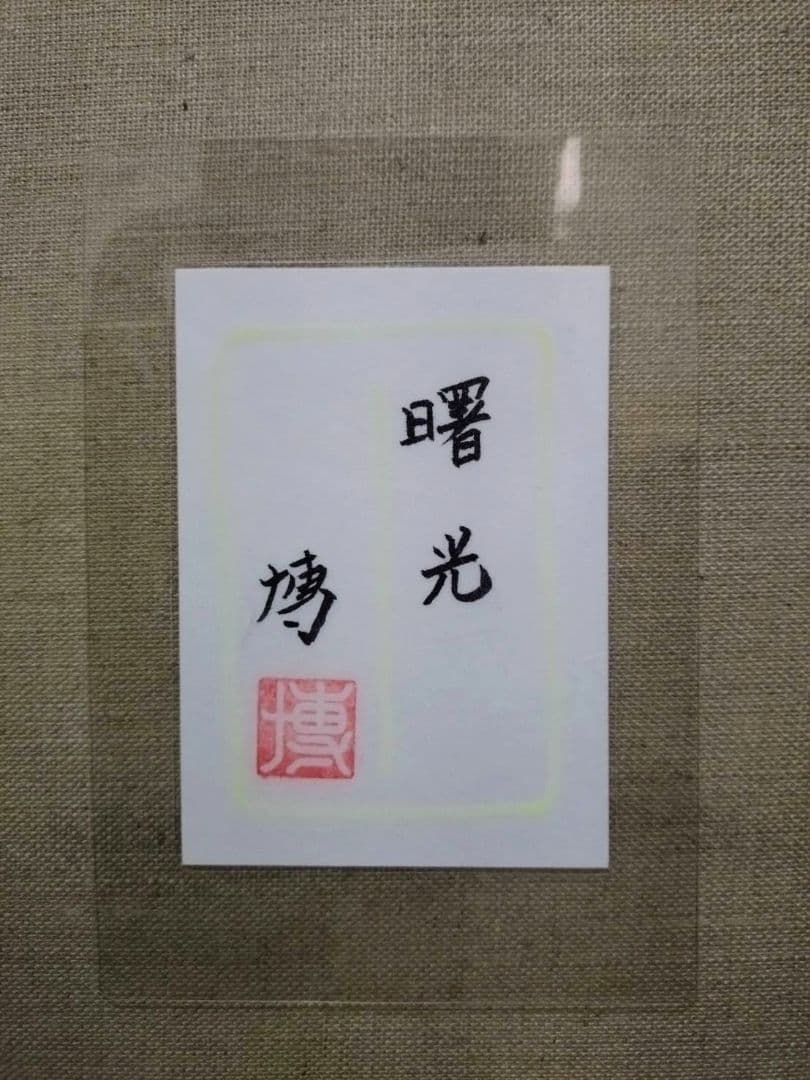 曙光
博
博